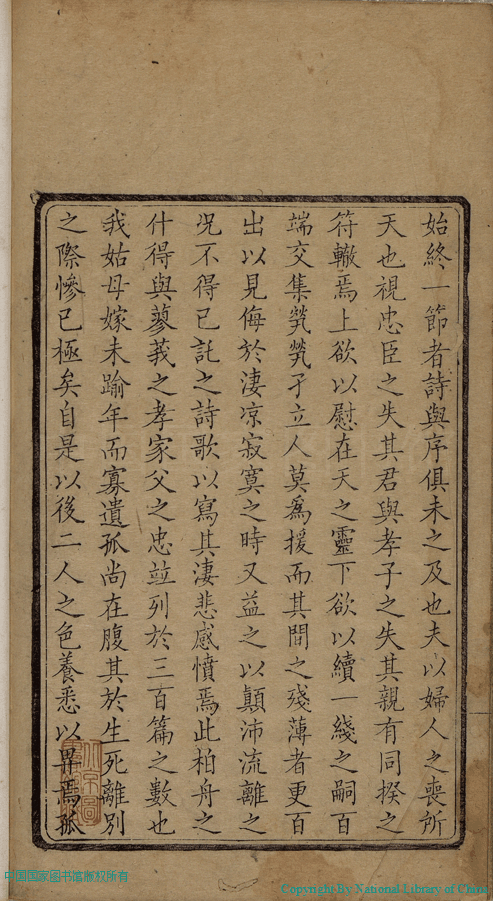 始終一節者詩與序俱未之及也夫以婦人之喪所
天也視忠臣之失其君與孝子之失其親有同揆之
符轍焉上欲以慰在天之靈下欲以續一綫之嗣百
端交集煢煢孑立人莫爲援而其間之殘薄者更百
出以見侮於淒凉寂寞之時又益之以顛沛流離之
況不得已託之詩歌以寫其淒悲感憤焉此柏舟之
什得與蓼莪之孝家父之忠竝列於三百篇之數也
我姑母嫁未踰年而寡遺孤尚在腹其於生死離別
之際慘已極矣自是以後二人之色養悉以畀焉孤
中国国家图书馆版权所有
Copyright By National Library of China